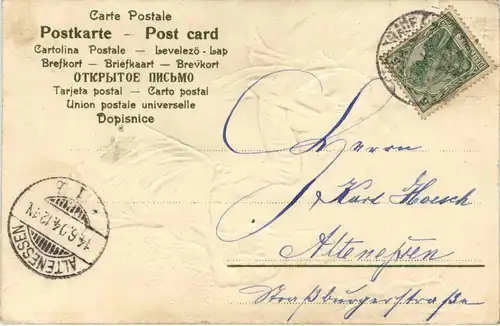 Carte Postale
Postkarte - Post card
Cartolina Postale — Levelező-Lap
Brefkort — Briefkaart — Brevkort
ОТКРЫТОЕ ПИСЬМО
Tarjeta postal — Carto postal
Union postale universelle
Dopisnice
Herrn
Karl Hoesch
Altenessen
Straßburgerstraße
ALTENESSEN
14.6.04.12-1N
* 1 b